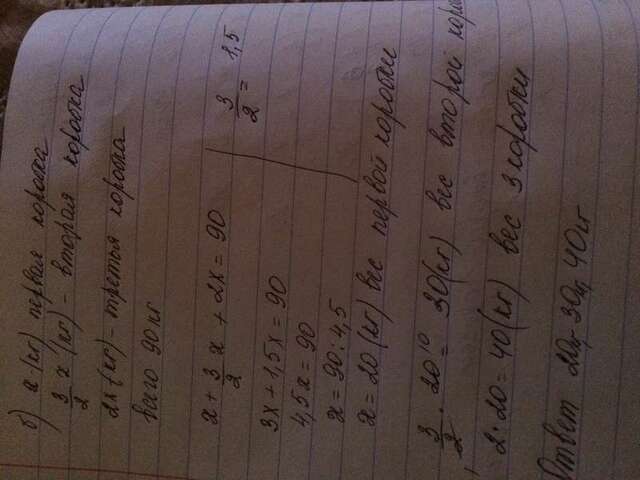 б) х (кг) первая коробка
3/2 х (кг) - вторая коробка
2х (кг) - третья коробка
всего 90 кг
х + 3/2 х + 2х = 90
3/2 = 1,5
3х + 1,5х = 90
4,5х = 90
х = 90 : 4,5
х = 20 (кг) вес первой коробки
3/2 · 20 10 = 30 (кг) вес второй короб
2 · 20 = 40 (кг) вес 3 коробки
Ответ 20кг, 30кг, 40кг